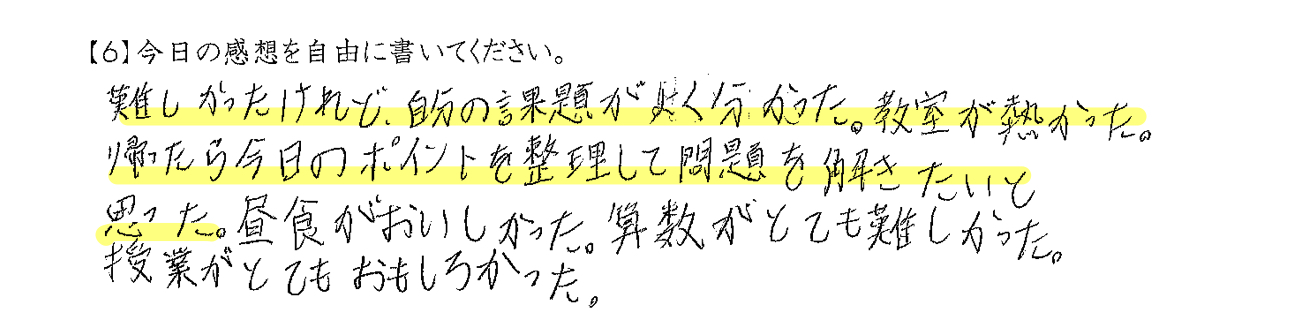 【6】今日の感想を自由に書いてください。
難しかったけれど、自分の課題がよく分かった。教室が熱かった。
帰ったら今日のポイントを整理して問題を解きたいと
思った。昼食がおいしかった。算数がとても難しかった。
授業がとてもおもしろかった。